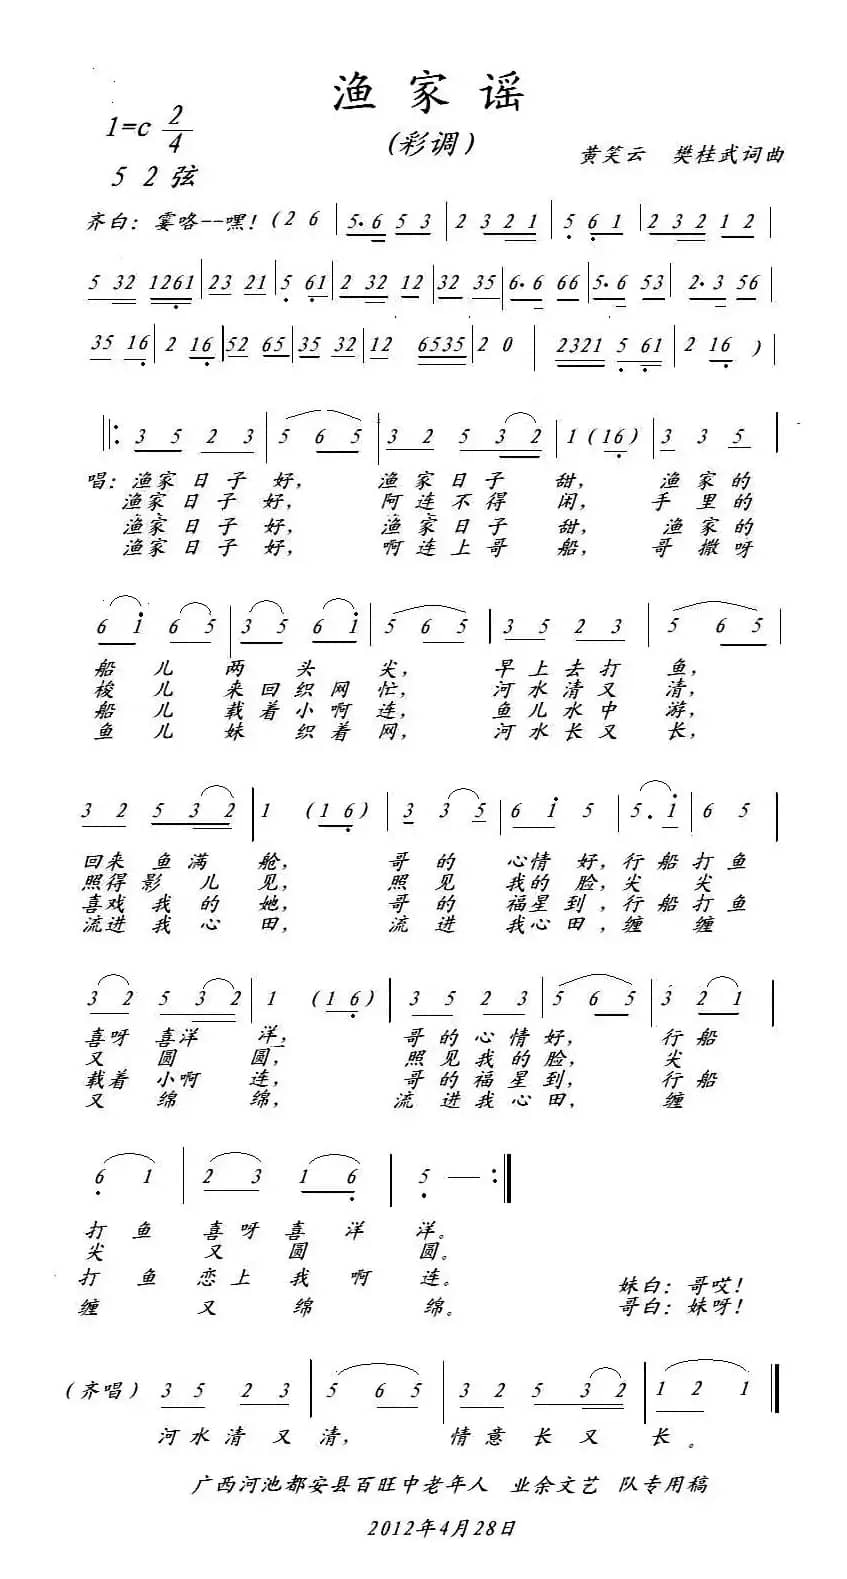 渔家谣
1=c 2/4
(彩调)
黄笑云 樊桂武词曲
5 2弦
齐白：霎咯--嘿！(2 6 | 5·6 5 3 | 2 3 2 1 | 5 6 1 | 2 3 2 1 2 |
5 32 1261 | 23 21 | 5 61 | 2 32 12 | 32 35 | 6·6 66 | 5·6 53 | 2·3 56
35 16 | 2 16 | 52 65 | 35 32 | 12 6535 | 2 0 | 2321 5 61 | 2 16 )
‖: 3 5 2 3 | 5 6 5 | 3 2 5 3 2 | 1 (16) | 3 3 5 |
唱：渔家日子好，渔家日子甜，渔家的
渔家日子好，阿连不得闲，手里的
渔家日子好，渔家日子甜，渔家的
渔家日子好，啊连上哥船，哥撒呀
6 i 6 5 | 3 5 6 i | 5 6 5 | 3 5 2 3 | 5 6 5 |
船儿两头尖，早上去打鱼，
梭儿来回织网忙，河水清又清，
船儿载着小啊连，鱼儿水中游，
鱼儿妹织着网，河水长又长，
3 2 5 3 2 | 1 (1 6) | 3 3 5 | 6 i 5 | 5·i 6 5 |
回来鱼满舱，哥的心情好，行船打鱼
照得影儿见，照见我的脸，尖尖
喜戏我的她，哥的福星到，行船打鱼
流进我心田，流进我心田，缠缠
3 2 5 3 2 | 1 (1 6) | 3 5 2 3 | 5 6 5 | 3 2 1 |
喜呀喜洋洋；哥的心情好，行船
又圆圆，照见我的脸，尖
载着小啊连，哥的福星到，行船
又绵绵，流进我心田，缠
6 1 | 2 3 1 6 | 5 — :‖
打鱼喜呀喜洋洋。
尖又圆圆。
打鱼恋上我啊连。
妹白：哥哎！
缠又绵绵。
哥白：妹呀！
(齐唱) 3 5 2 3 | 5 6 5 | 3 2 5 3 2 | 1 2 1 ‖
河水清又清，情意长又长。
广西河池都安县百旺中老年人 业余文艺 队专用稿
2012年4月28日